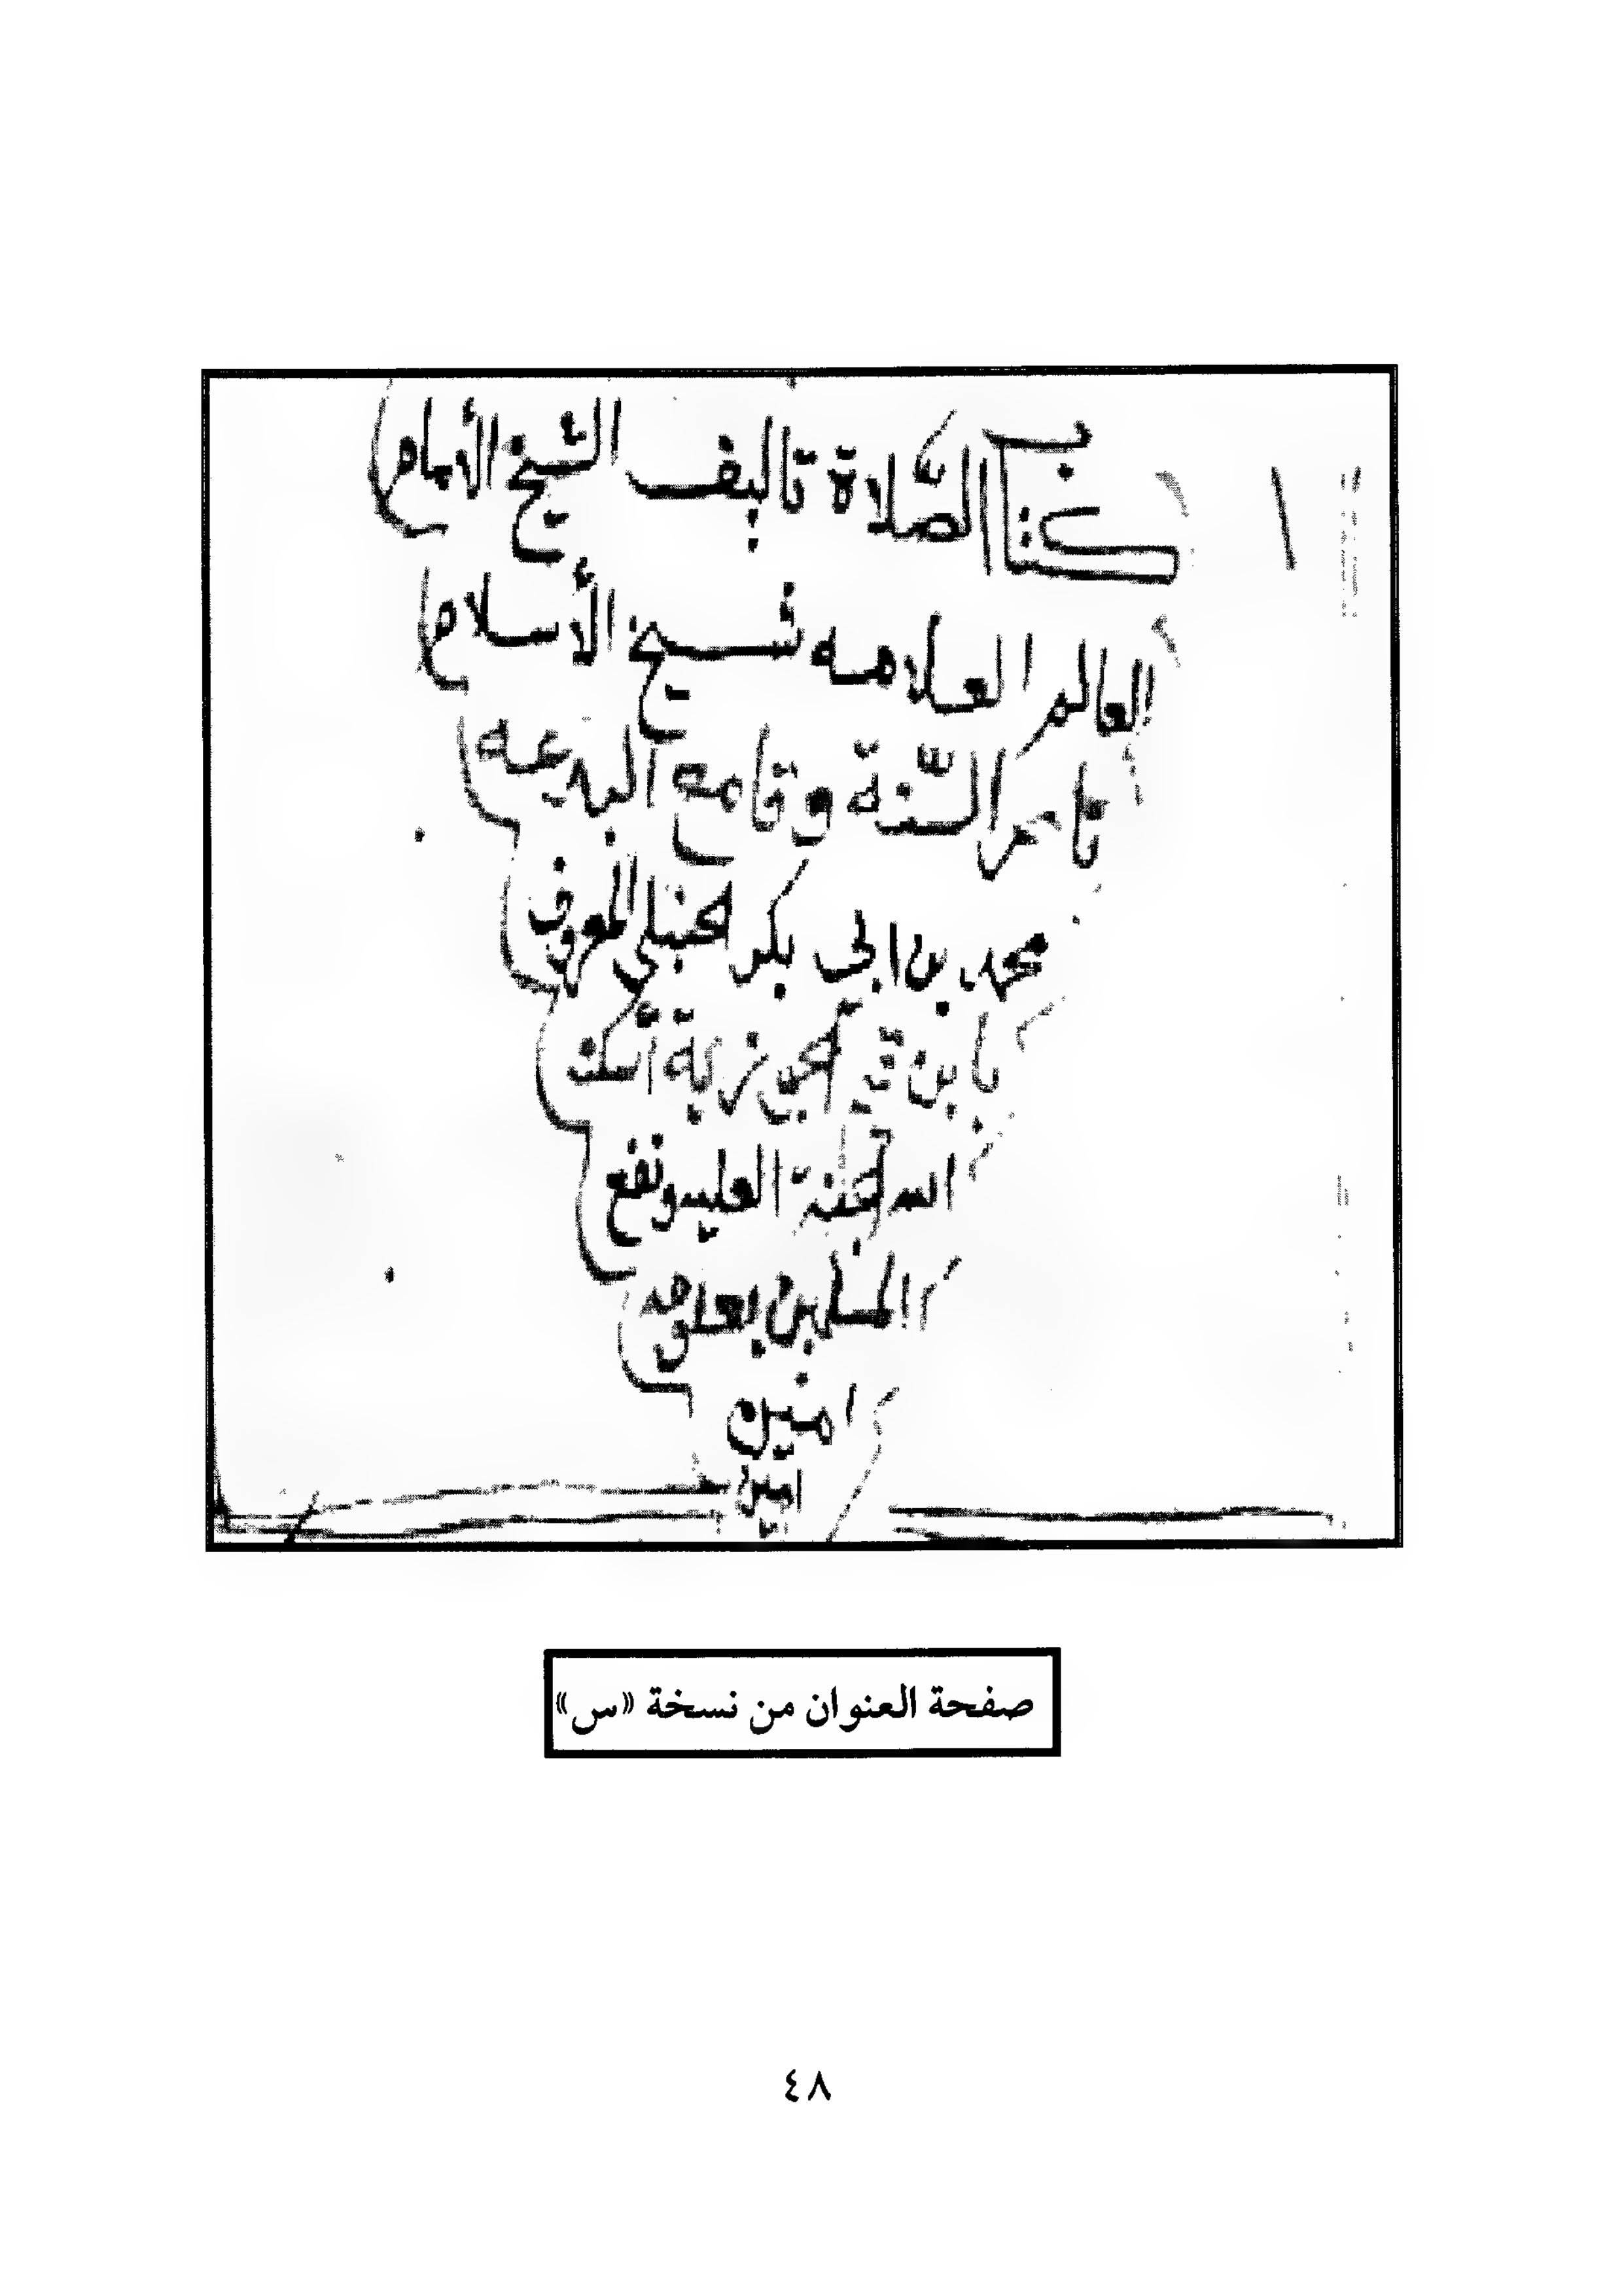 كتاب الصّلاة تاليف الشيخ الأمام
العالم العلامه شيخ الأسلام
ناصر السّنة وقامع البدعه
محمد بن ابي بكر الحنبلي المعروف
با بن قيم الجوزية أسكنه
الله الجنة العليه ونفع
المسلمين بعلومه
امين
امين
صفحة العنوان من نسخة «س»
٤٨